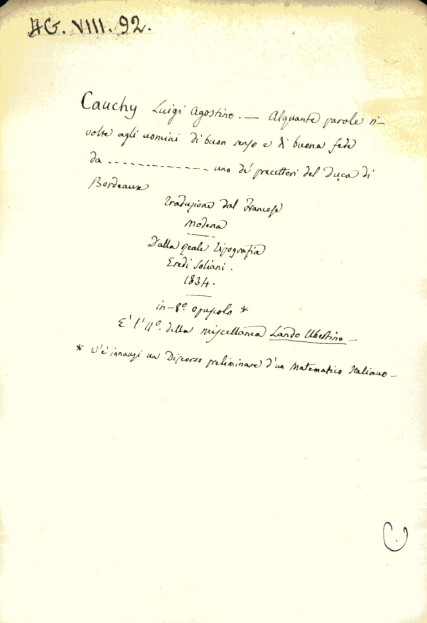 AG. VIII. 92.
Cauchy Luigi Agostino. — Alquante parole ri-
volte agli uomini di buon senso e di buona fede
da ------------- uno de' precettori del Duca di
Bordeaux
Traduzione dal Francese
Modena
Dalla Reale Tipografia
Eredi Soliani.
1834.
in-8.° opuscolo *
È l'11.° della miscellanea Lando
* V'è innanzi un Discorso preliminare d'un Matematico Italiano_
C.